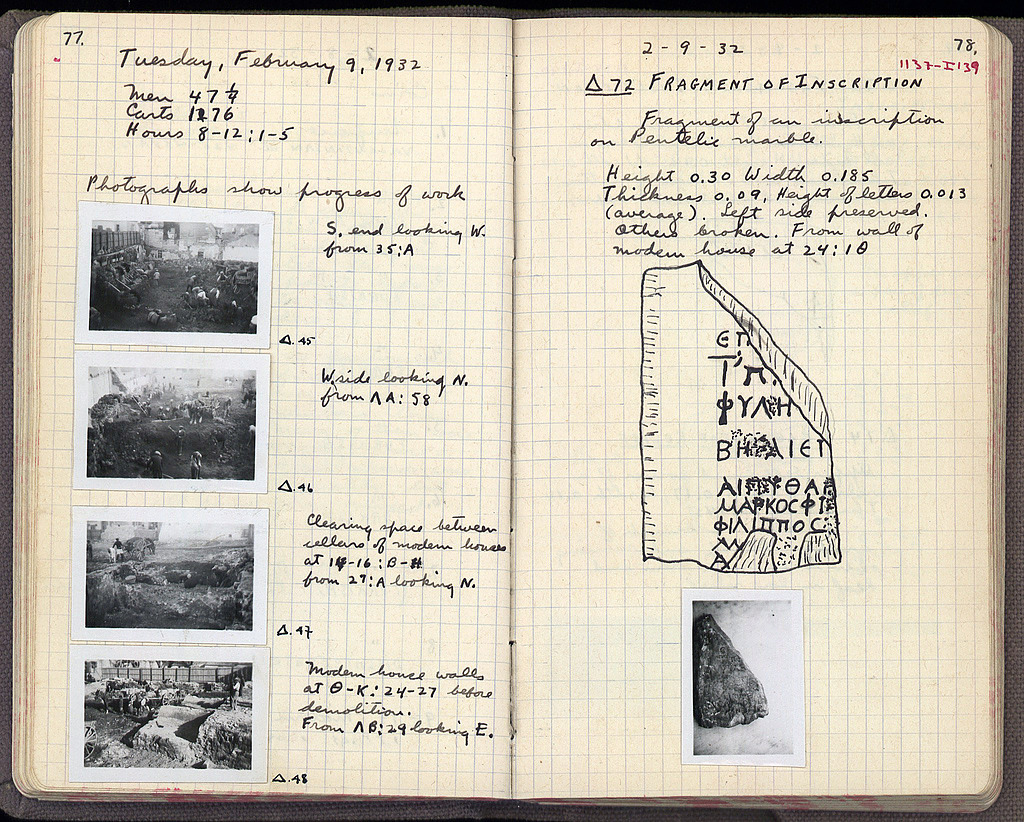 77.
Tuesday, February 9, 1932
Men 47 1/4
Carts 1276
Hours 8-12; 1-5
Photographs show progress of work
S. end looking W.
from 35:A
Δ.45
W. side looking N.
from ΛA: 58
Δ.46
Clearing space between
cellars of modern houses
at 14-16: B-H
from 27:A looking N.
Δ.47
Modern house walls
at Θ-K: 24-27 before
demolition.
From ΛB:29 looking E.
Δ.48
2-9-32
78.
1137-I139
Δ 72 FRAGMENT OF INSCRIPTION
Fragment of an inscription
on Pentelic marble.
Height 0.30 Width 0.185
Thickness 0.09, Height of letters 0.013
(average). Left side preserved.
Others broken. From wall of
modern house at 24:ΙΘ
ЄΠ
Τ'Π.
ΦΥΛΗ
ΒΗ ΑΙЄΥ
ΑΙ ΘΑ
ΜΑΡΚΟС ΦΙ
ΦΙΛΙΠΠΟС